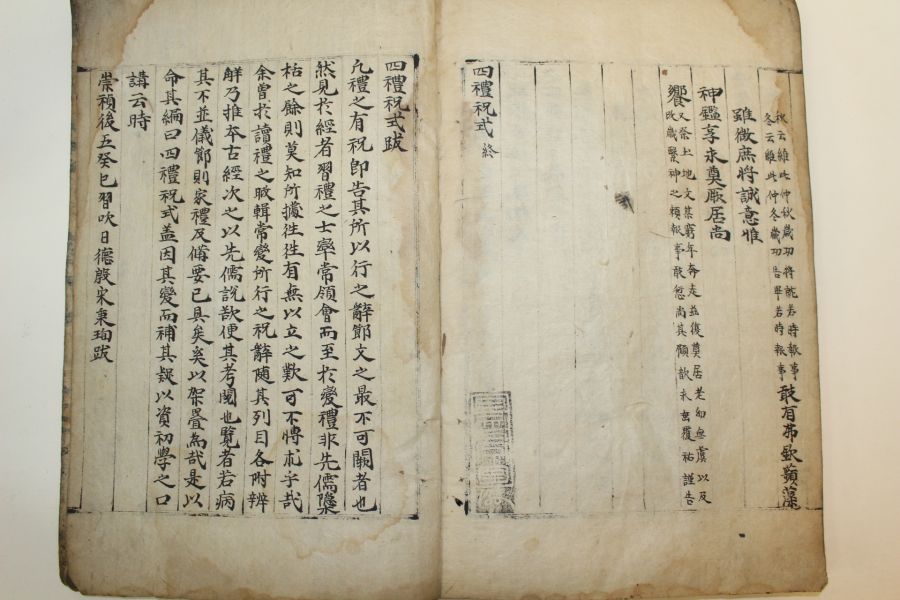 秋云維此仲秋歲功將就若時報事
冬云維此仲冬歲功告畢若時報事
敢有弗欽蘋藻
雖微庶將誠意惟
神鑑享永奠厥居尚
饗
又祭土地文某窮年奔走並復奠居老幼無虞以及
改歲繄神之賴報事敢怠尚其顧歆永垂覆祐謹告
四禮祝式 終
四禮祝式跋
凡禮之有祝即告其所以行之辭節文之最不可闕者也
然見於經者習禮之士率常領會而至於變禮非先儒隱
栝之餘則莫知所據徃徃有無以立之歎可不愽求乎哉
余曾於讀禮之暇輯常變所行之祝辭隨其列目各附辨
解乃推夲古經次之以先儒說欲便其考閱也覽者若病
其不並儀節則家禮及備要已具矣奚以架疊為哉是以
命其編曰四禮祝式盖因其變而補其疑以資初學之口
講云時
崇禎後五癸巳習吹日德殷宋秉珣跋